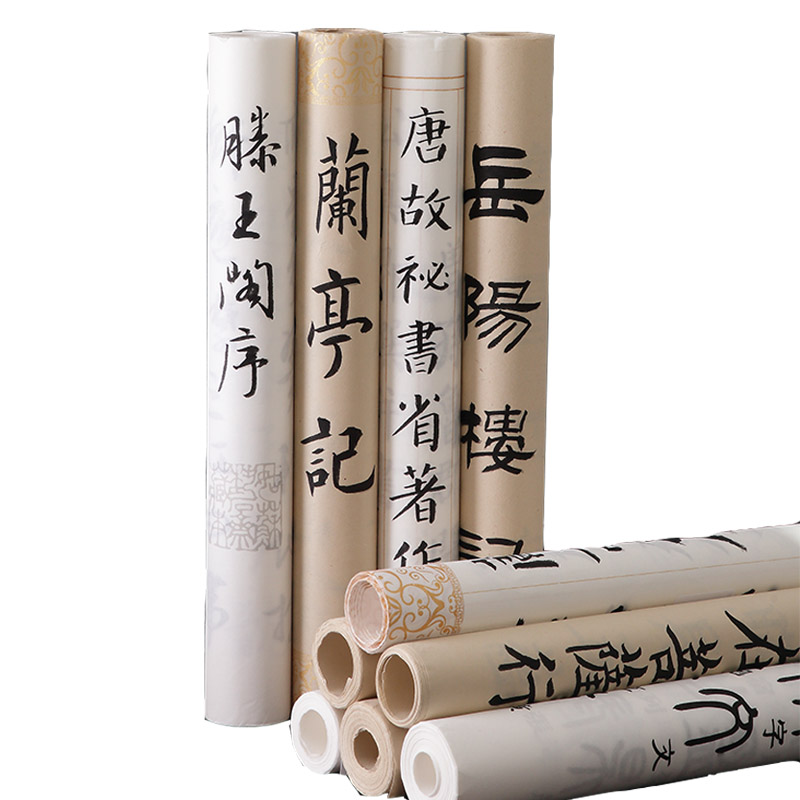 滕王阁序
蘭亭記
唐故祕書省著作
岳陽樓記
在菩薩行
字文